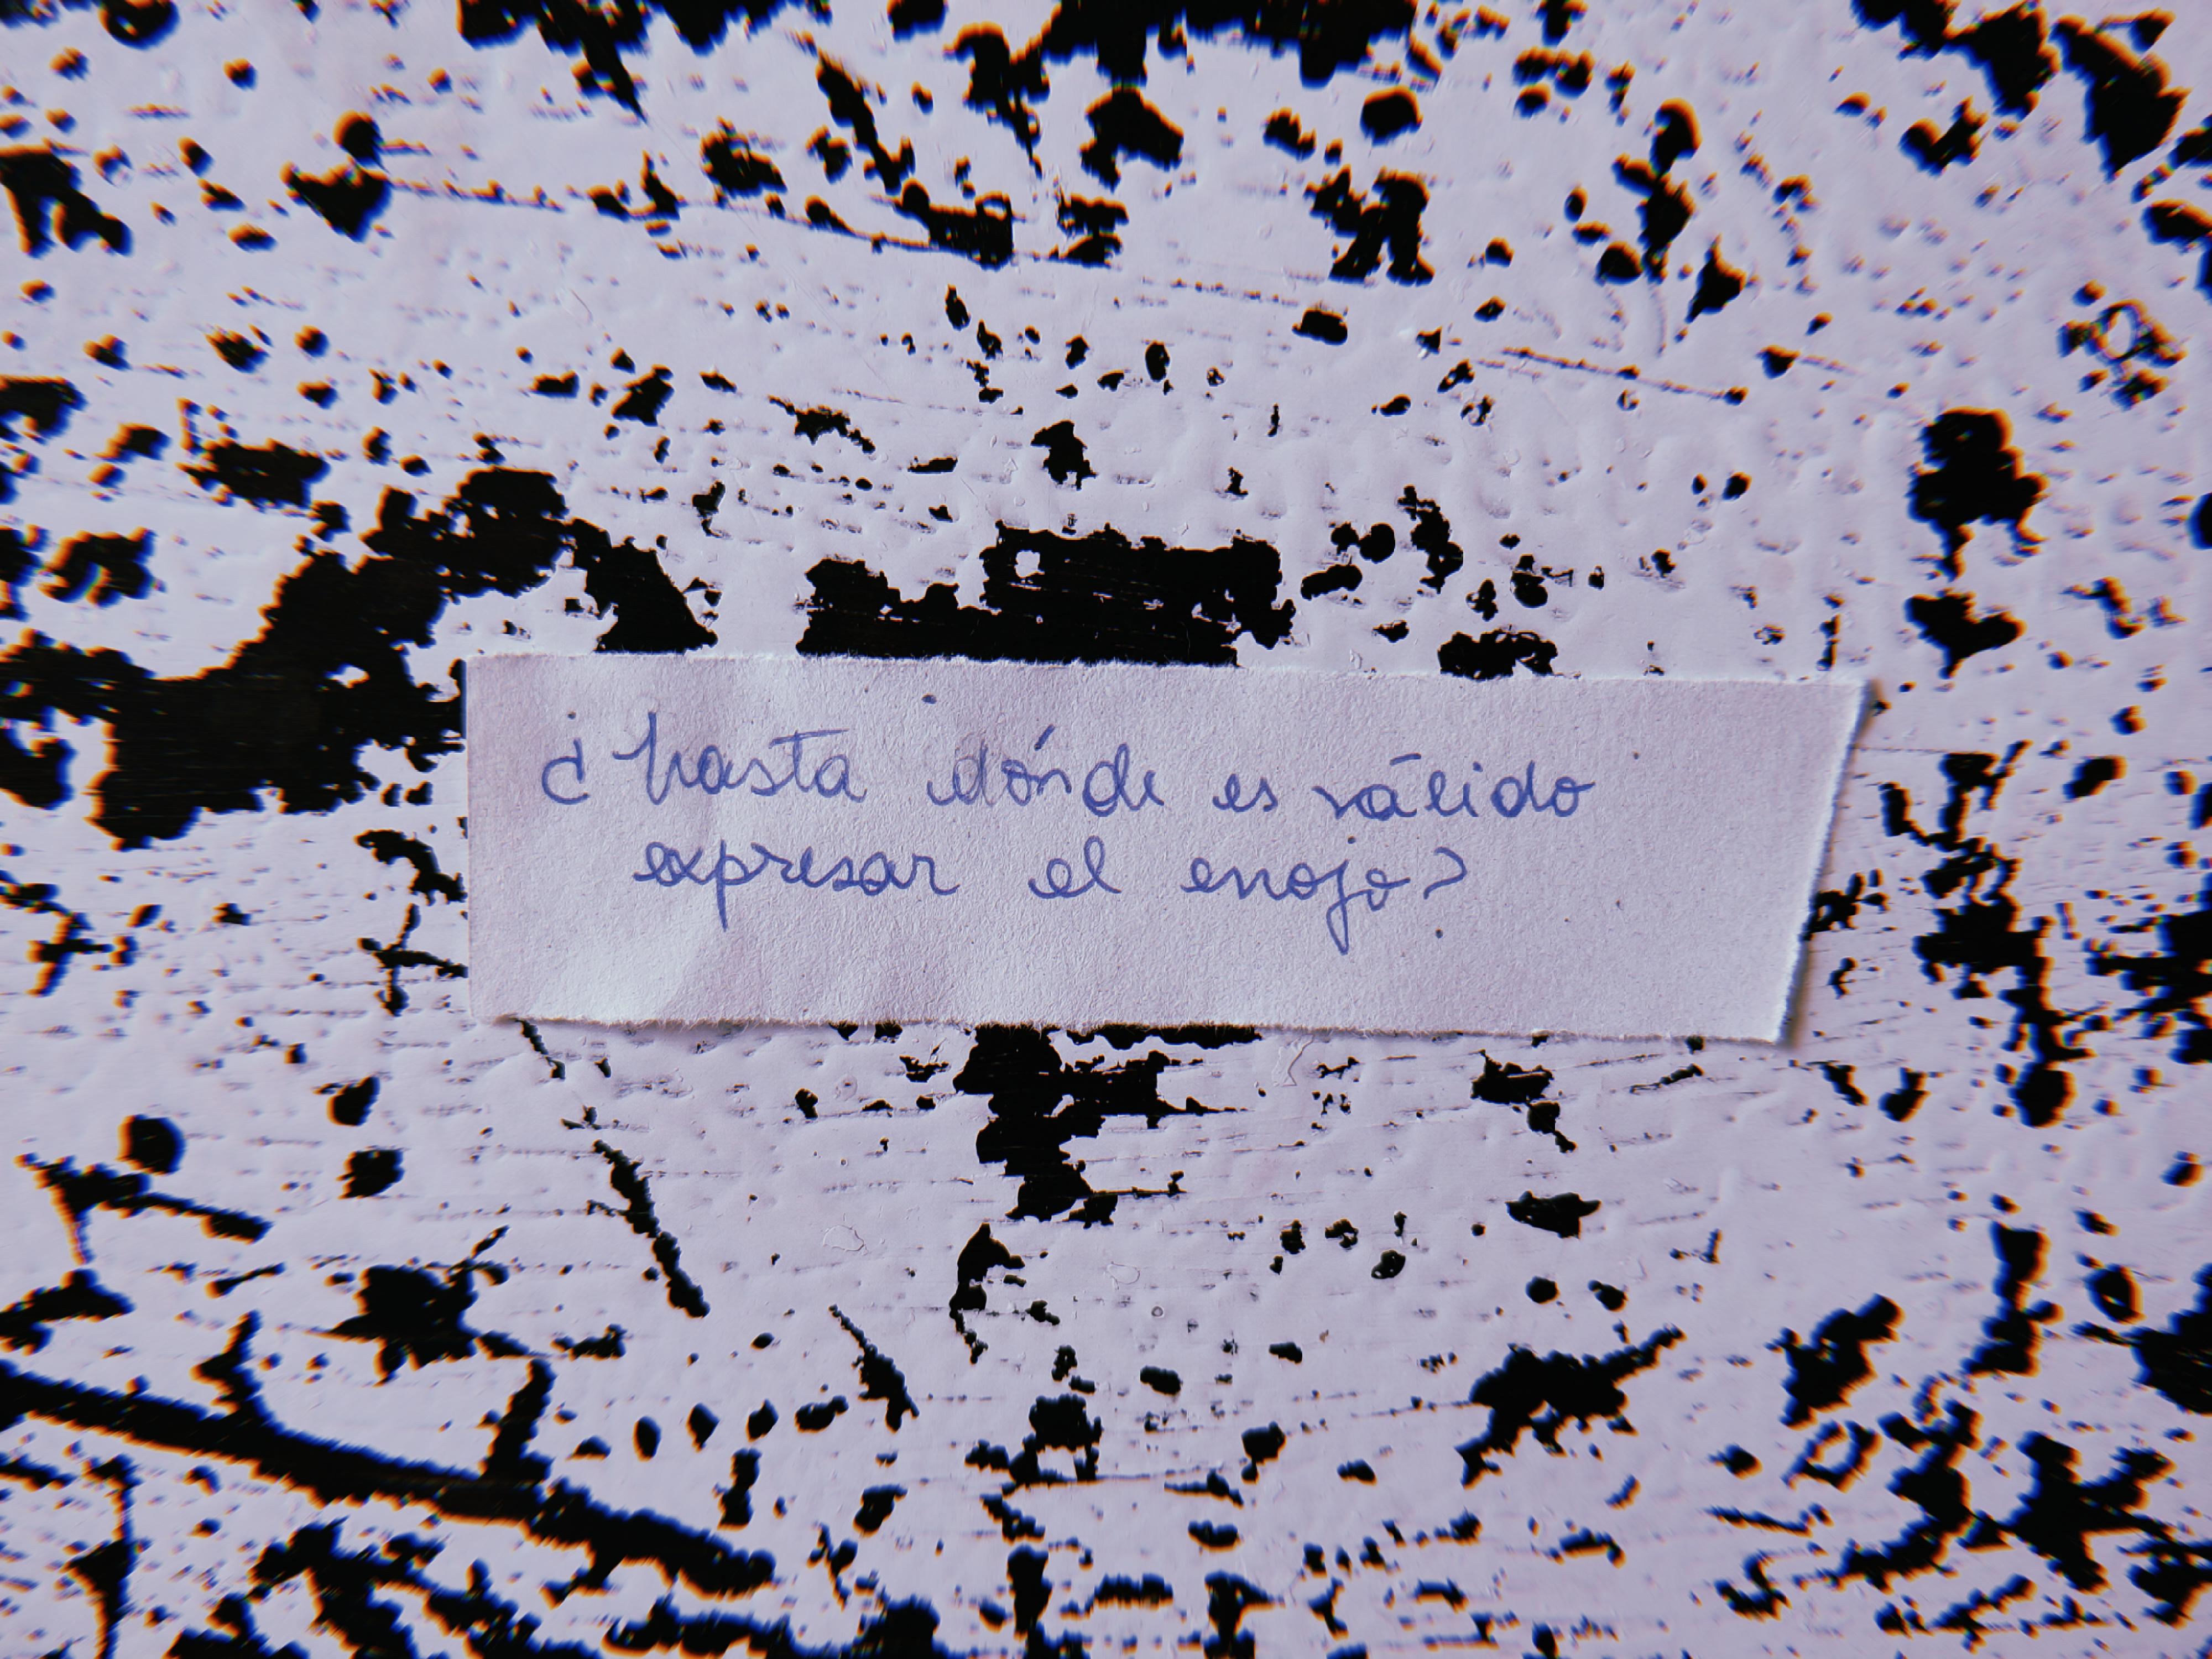 ¿hasta dónde es válido
expresar el enojo?